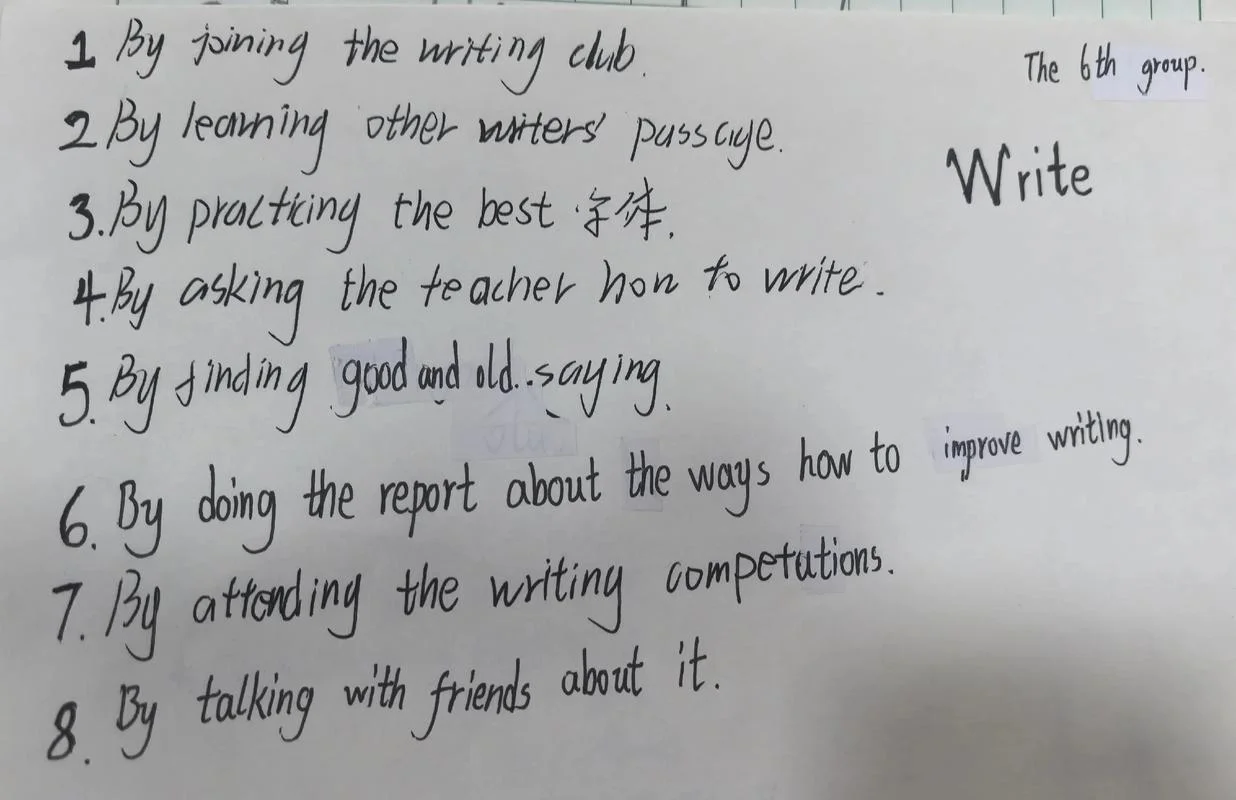 The 6th group.
Write
1 By joining the writing club.
2 By learning other writers' passage.
3. By practicing the best 字体.
4. By asking the teacher how to write.
5. By finding good and old..saying.
6. By doing the report about the ways how to improve writing.
7. By attending the writing competutions.
8. By talking with friends about it.